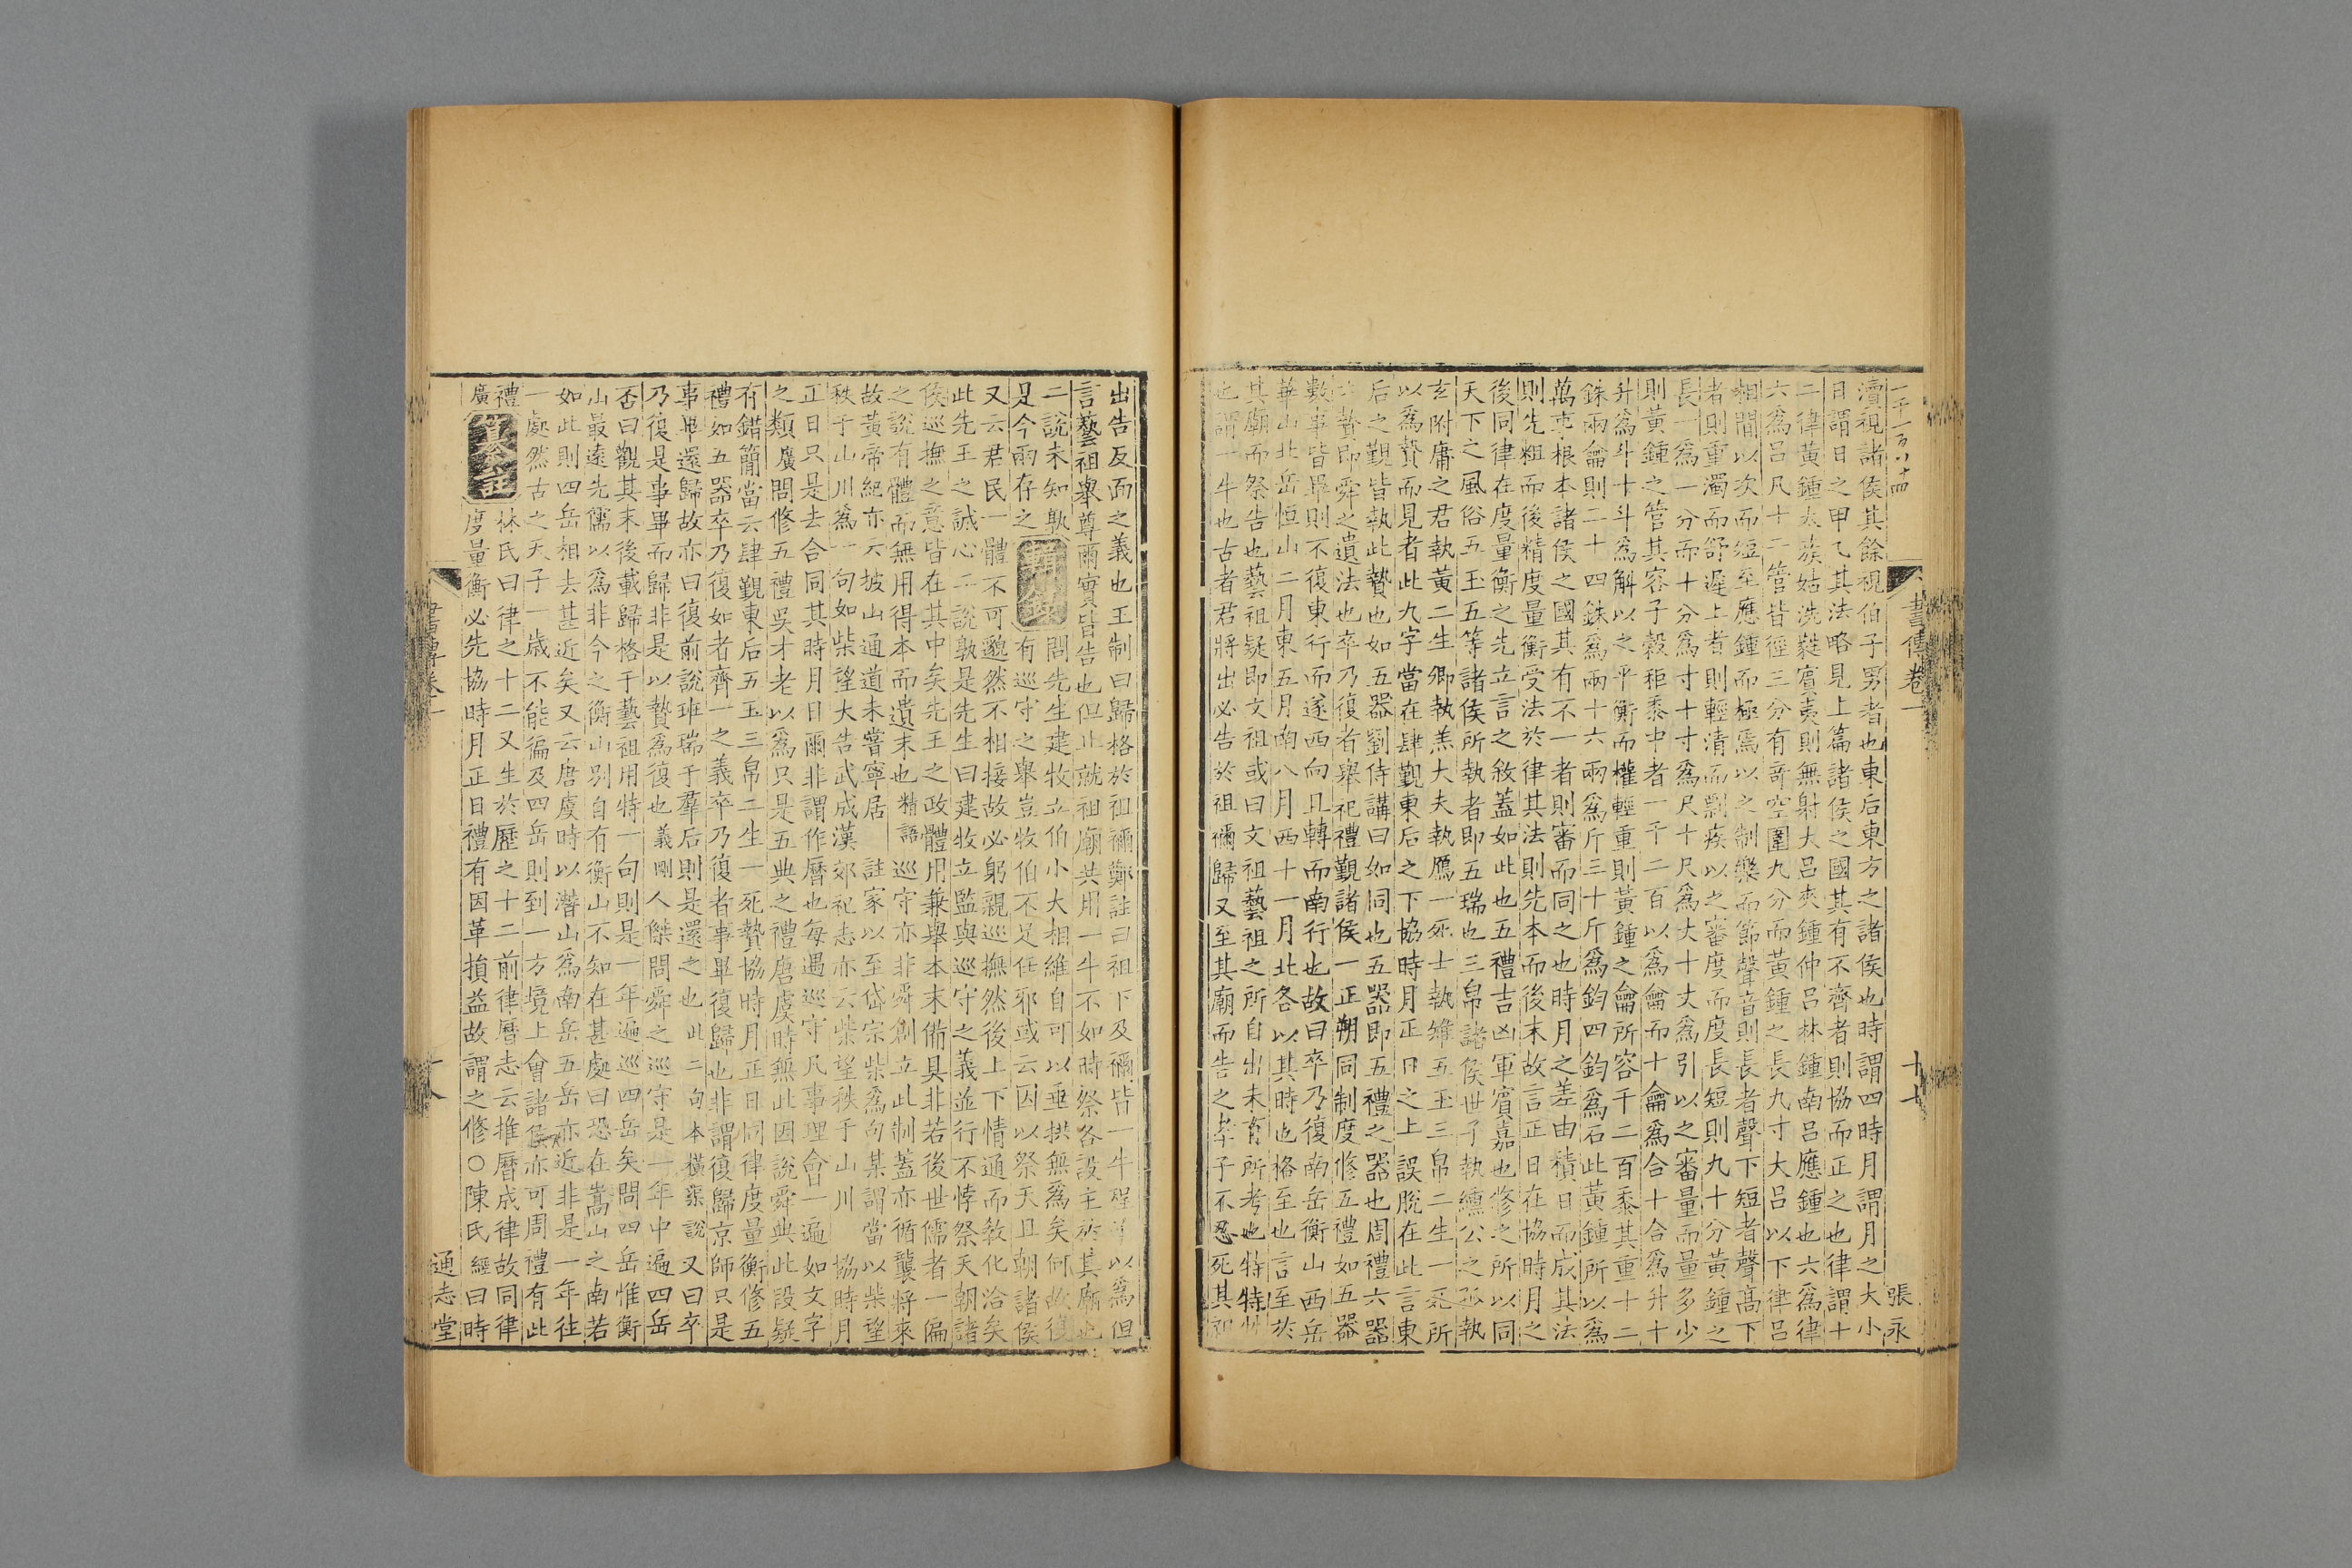 一千一百八十四 書傳卷一 十七 張永
瀆視諸侯其餘視伯子男者也東后東方之諸侯也時謂四時月謂月之大小
日謂日之甲乙其法略見上篇諸侯之國其有不齊者則協而正之也律謂十
二律黃鍾太蔟姑洗蕤賓夷則無射大呂夾鍾仲呂林鍾南呂應鍾也六爲律
六爲呂凡十二管皆徑三分有奇空圍九分而黃鍾之長九寸大呂以下律呂
相間以次而短至應鍾而極焉以之制樂而節聲音則長者聲下短者聲高下
者則重濁而舒遲上者則輕清而剽疾以之審度而度長短則九十分黃鍾之
長一爲一分而十分爲寸十寸爲尺十尺爲丈十丈爲引以之審量而量多少
則黃鍾之管其容子穀秬黍中者一千二百以爲龠而十龠爲合十合爲升十
升爲斗十斗爲斛以之平衡而權輕重則黃鍾之龠所容千二百黍其重十二
銖兩龠則二十四銖爲兩十六兩爲斤三十斤爲鈞四鈞爲石此黃鍾所以爲
萬事根本諸侯之國其有不一者則審而同之也時月之差由積日而成其法
則先粗而後精度量衡受法於律其法則先本而後末故言正日在協時月之
後同律在度量衡之先立言之敘蓋如此也五禮吉凶軍賓嘉也修之所以同
天下之風俗五玉五等諸侯所執者即五瑞也三帛諸侯世子執纁公之孤執
玄附庸之君執黃二生卿執羔大夫執鴈一死士執雉五玉三帛二生一死所
以爲贄而見者此九字當在肆覲東后之下協時月正日之上誤脫在此言東
后之覲皆執此贄也如五器劉侍講曰如同也五器即五禮之器也周禮六器
六贄即舜之遺法也卒乃復者舉祀禮覲諸侯一正朔同制度修五禮如五器
數事皆畢則不復東行而遂西向且轉而南行也故曰卒乃復南岳衡山西岳
華山北岳恒山二月東五月南八月西十一月北各以其時也格至也言至於
其廟而祭告也藝祖疑即文祖或曰文祖藝祖之所自出未有所考也特特牲
也謂一牛也古者君將出必告於祖禰歸又至其廟而告之孝子不忍死其親
出告反面之義也王制曰歸格於祖禰鄭註曰祖下及禰皆一牛程子以爲但
言藝祖舉尊爾實皆告也但止就祖廟共用一牛不如時祭各設主於其廟也
二說未知孰
是今兩存之 輯錄 問先生建牧立伯小大相維自可以垂拱無爲矣何故復
有巡守之舉豈牧伯不足任邪或云因以祭天且朝諸侯
又云君民一體不可邈然不相接故必躬親巡撫然後上下情通而教化洽矣
此先王之誠心二說孰是先生曰建牧立監與巡守之義並行不悖祭天朝諸
侯巡撫之意皆在其中矣先王之政體用兼舉本末備具非若後世儒者一偏
之說有體而無用得本而遺末也 精語 巡守亦非舜創立此制蓋亦循襲將來
故黃帝紀亦云披山通道未嘗寧居 註家以至岱宗柴爲句某謂當以柴望
秩于山川爲一句如柴望大告武成漢郊祀志亦云柴望秩于山川 協時月
正日只是去合同其時月日爾非謂作曆也每遇巡守凡事理會一遍如文字
之類廣問修五禮吳才老以爲只是五典之禮唐虞時無此因說舜典此段疑
有錯簡當云肆覲東后五玉三帛二生一死贄協時月正日同律度量衡修五
禮如五器卒乃復如者齊一之義卒乃復者事畢復歸也非謂復歸京師只是
事畢還歸故亦曰復前說班瑞于羣后則是還之也此二句本橫渠說又曰卒
乃復是事畢而歸非是以贄爲復也義剛 人傑問舜之巡守是一年中遍四岳
否曰觀其末後載歸格于藝祖用特一句則是一年遍巡四岳矣問四岳惟衡
山最遠先儒以爲非今之衡山別自有衡山不知在甚處曰恐在嵩山之南若
如此則四岳相去甚近矣又云唐虞時以潛山爲南岳五岳亦近非是一年往
一處然古之天子一歲不能徧及四岳則到一方境上會諸侯亦可周禮有此
禮
廣 纂註 林氏曰律之十二又生於歷之十二前律曆志云推曆成律故同律
度量衡必先協時月正日禮有因革損益故謂之修○陳氏經曰時
書傳卷一 十八 通志堂